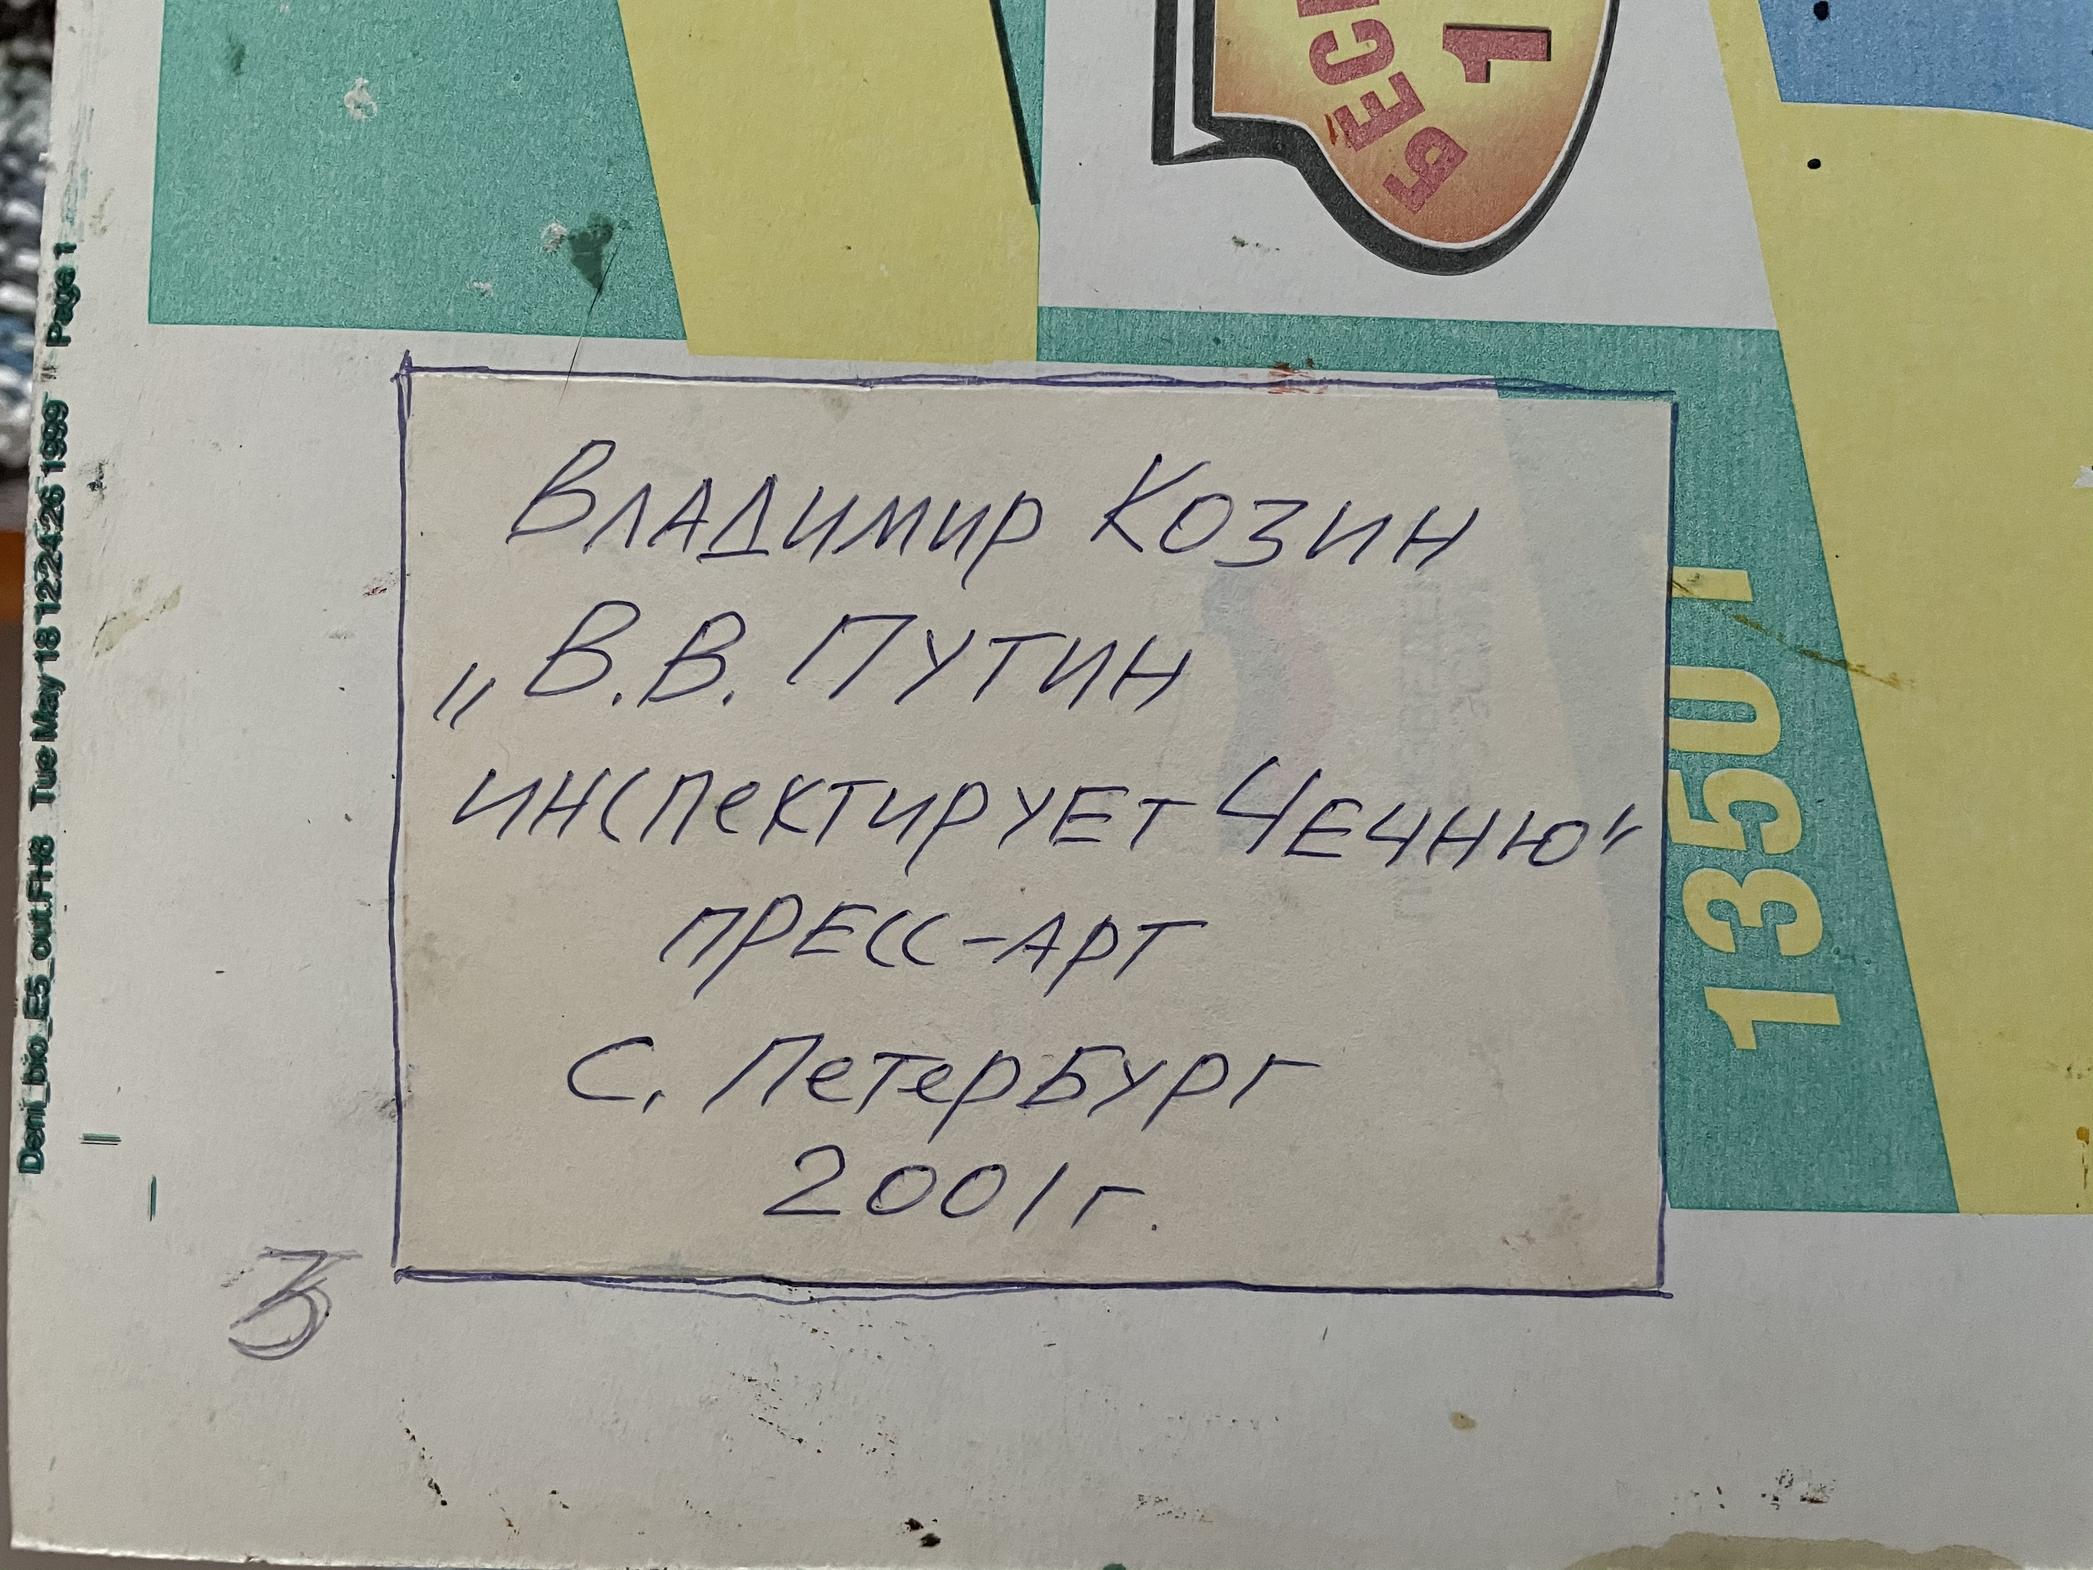 БЕС
1
Deni_bio_E5_out.FH8 Tue May 18 12:24:26 1999 Page 1
Владимир Козин
„В.В. Путин
инспектирует Чечню"
пресс-арт
С. Петербург
2001 г.
13501
3